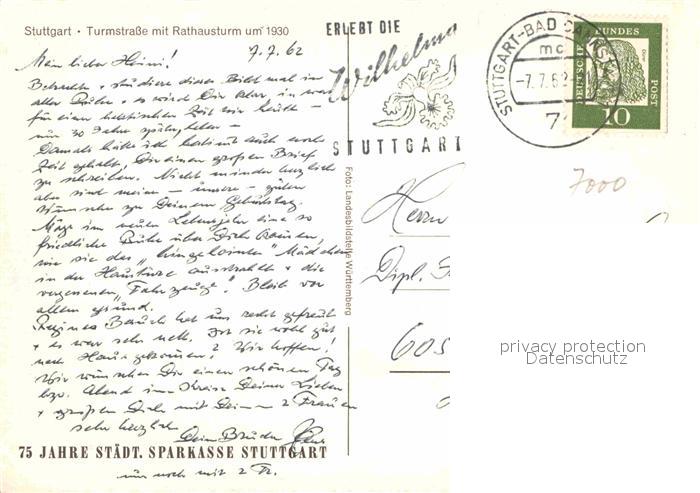 Stuttgart · Turmstraße mit Rathausturm um 1930
7.7.62
Mein lieber Heini!
Betrachte + studiere dieses Bild mal in
aller Ruhe + es wird Dir klar, in was
für einer hektischen Zeit wir heute –
nur 30 Jahre später, leben –
Damals hätte ich bestimmt auch noch
Zeit gehabt, Dir einen großen Brief
zu schreiben. Nicht minder herzlich
aber sind meine – unsere – guten
Wünsche zu Deinem Geburtstag.
Möge im neuen Lebensjahr eine so
friedliche Ruhe über Dich kommen,
wie sie das "hingelehnte" Mädchen
in der Haustüre ausstrahlt + die
vergessenen "Fahrzeuge". Bleib vor
allem gesund.
Reginas Besuch hat uns recht gefreut
+ es war sehr nett. Ist sie wohl gut
nach Hause gekommen? Wir hoffen!
Wir wünschen Dir einen schönen Tag
bzw. Abend im Kreise Deiner Lieben
+ grüßen Dich mit Deinen 2 Frauen
sehr herzlich
Dein Bruder
75 JAHRE STÄDT. SPARKASSE STUTTGART
nur noch mit 2 Fr.
Foto: Landesbildstelle Württemberg
ERLEBT DIE
Wilhelma
STUTTGART
STUTTGART-BAD CANNSTATT
mc
-7.7.62
7
DEUTSCHE BUNDESPOST
10
7000
Herrn
Dipl.
605
privacy protection
Datenschutz